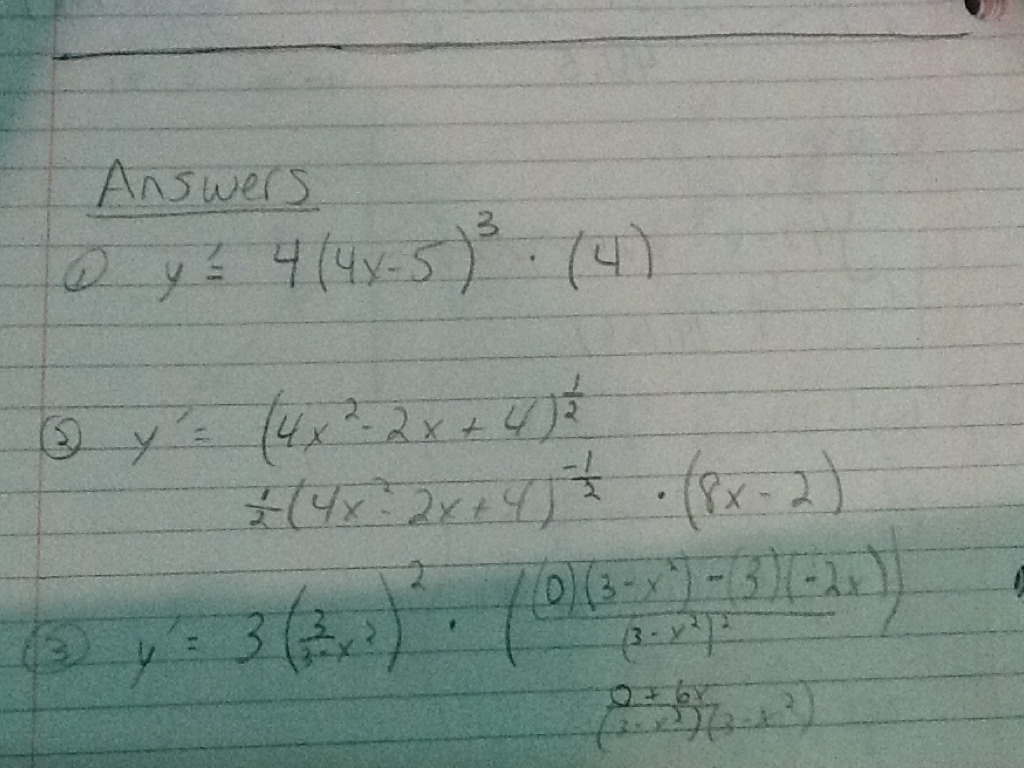 Answers
① y' = 4(4x-5)³ · (4)
② y' = (4x²-2x+4)^½
½(4x²-2x+4)^-½ · (8x-2)
③ y' = 3(3/(3-x²))² · (((0)(3-x²)-(3)(-2x))/(3-x²)²)
(0+6x)/((3-x²)(3-x²))